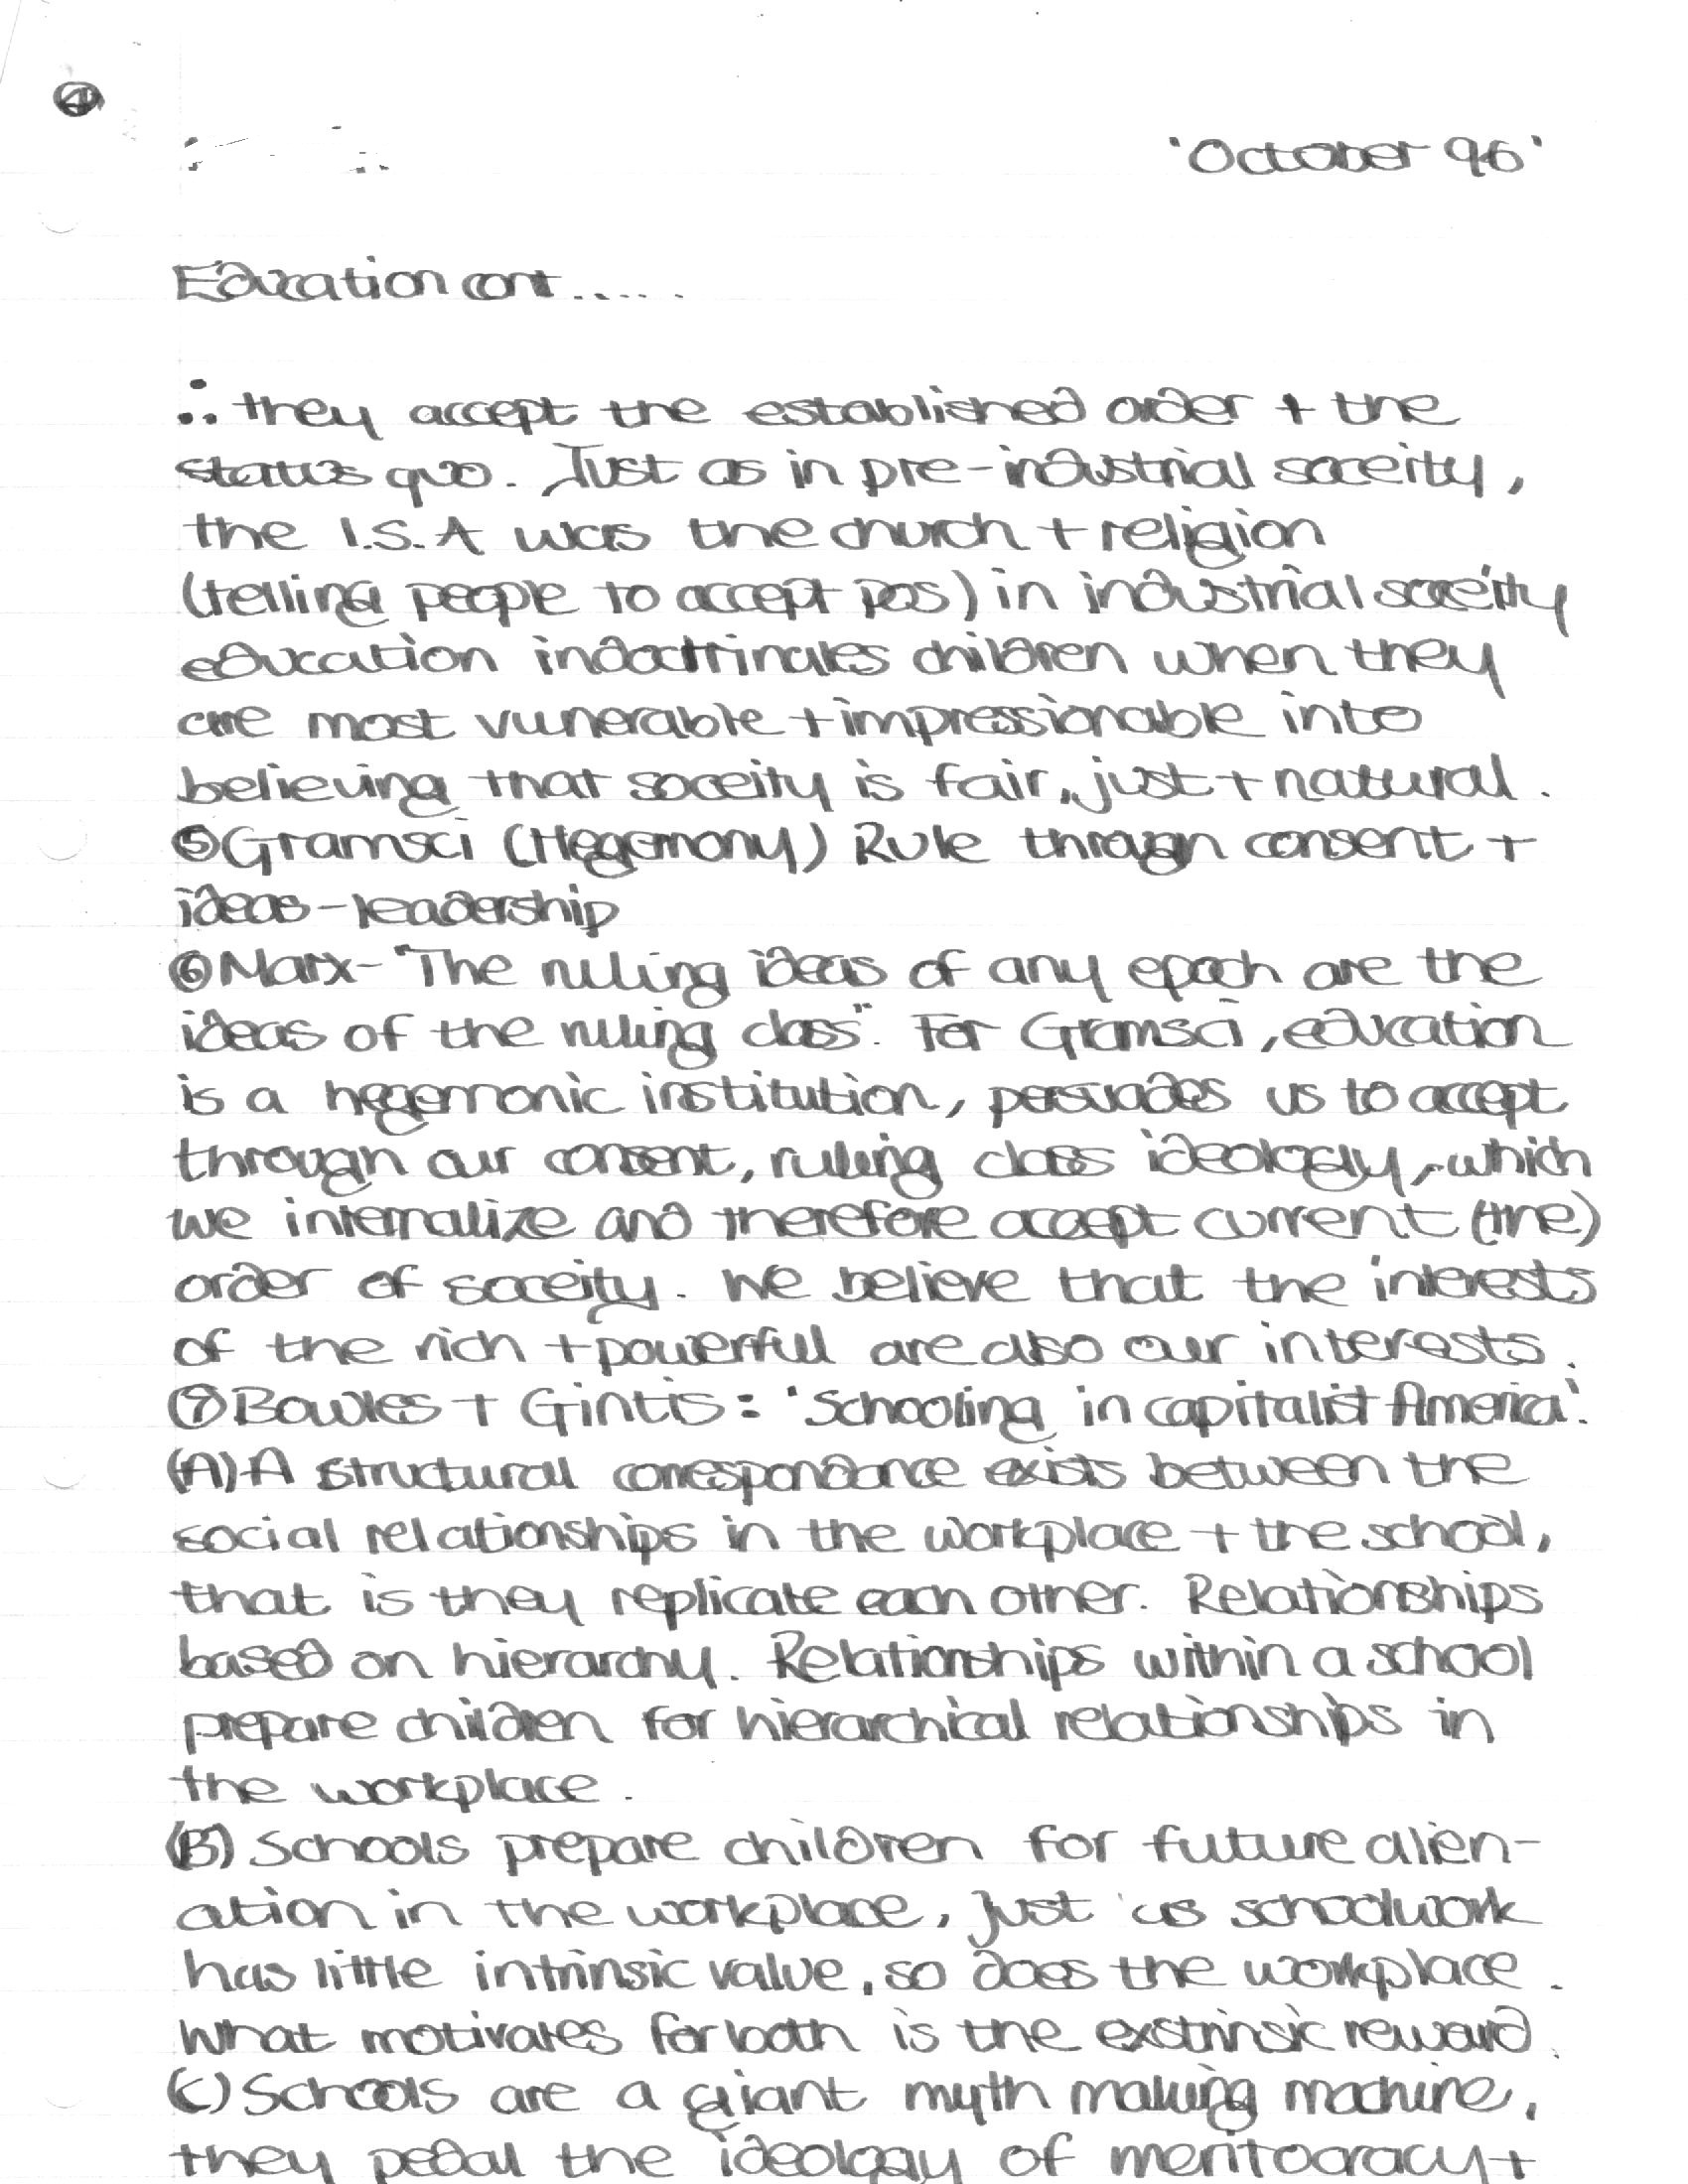 ④
'October 96'
Education cont.....
∴ they accept the established order + the
status quo. Just as in pre-industrial soceity,
the I.S.A was the church + religion
(telling people to accept pos) in industrial soceity
education indoctrinates children when they
are most vunerable + impressionable into
believing that soceity is fair, just + natural.
⑤Gramsci (Hegemony) Rule through consent +
ideas - leadership
⑥Marx- "The ruling ideas of any epoch are the
ideas of the ruling class". For Gramsci, education
is a hegemonic institution, persuades us to accept
through our consent, ruling class ideology, which
we internalize and therefore accept current (the)
order of soceity. We believe that the interests
of the rich + powerful are also our interests.
⑦Bowles + Gintis: 'Schooling in capitalist America'.
(A) A structural correspondance exists between the
social relationships in the workplace + the school,
that is they replicate each other. Relationships
based on hierarchy. Relationships within a school
prepare children for hierarchical relationships in
the workplace.
(B) Schools prepare children for future alien-
ation in the workplace, just as schoolwork
has little intrinsic value, so does the workplace.
What motivates for both is the exstrinsic reward.
(C) Schools are a giant myth making machine,
they pedal the ideology of meritocracy +